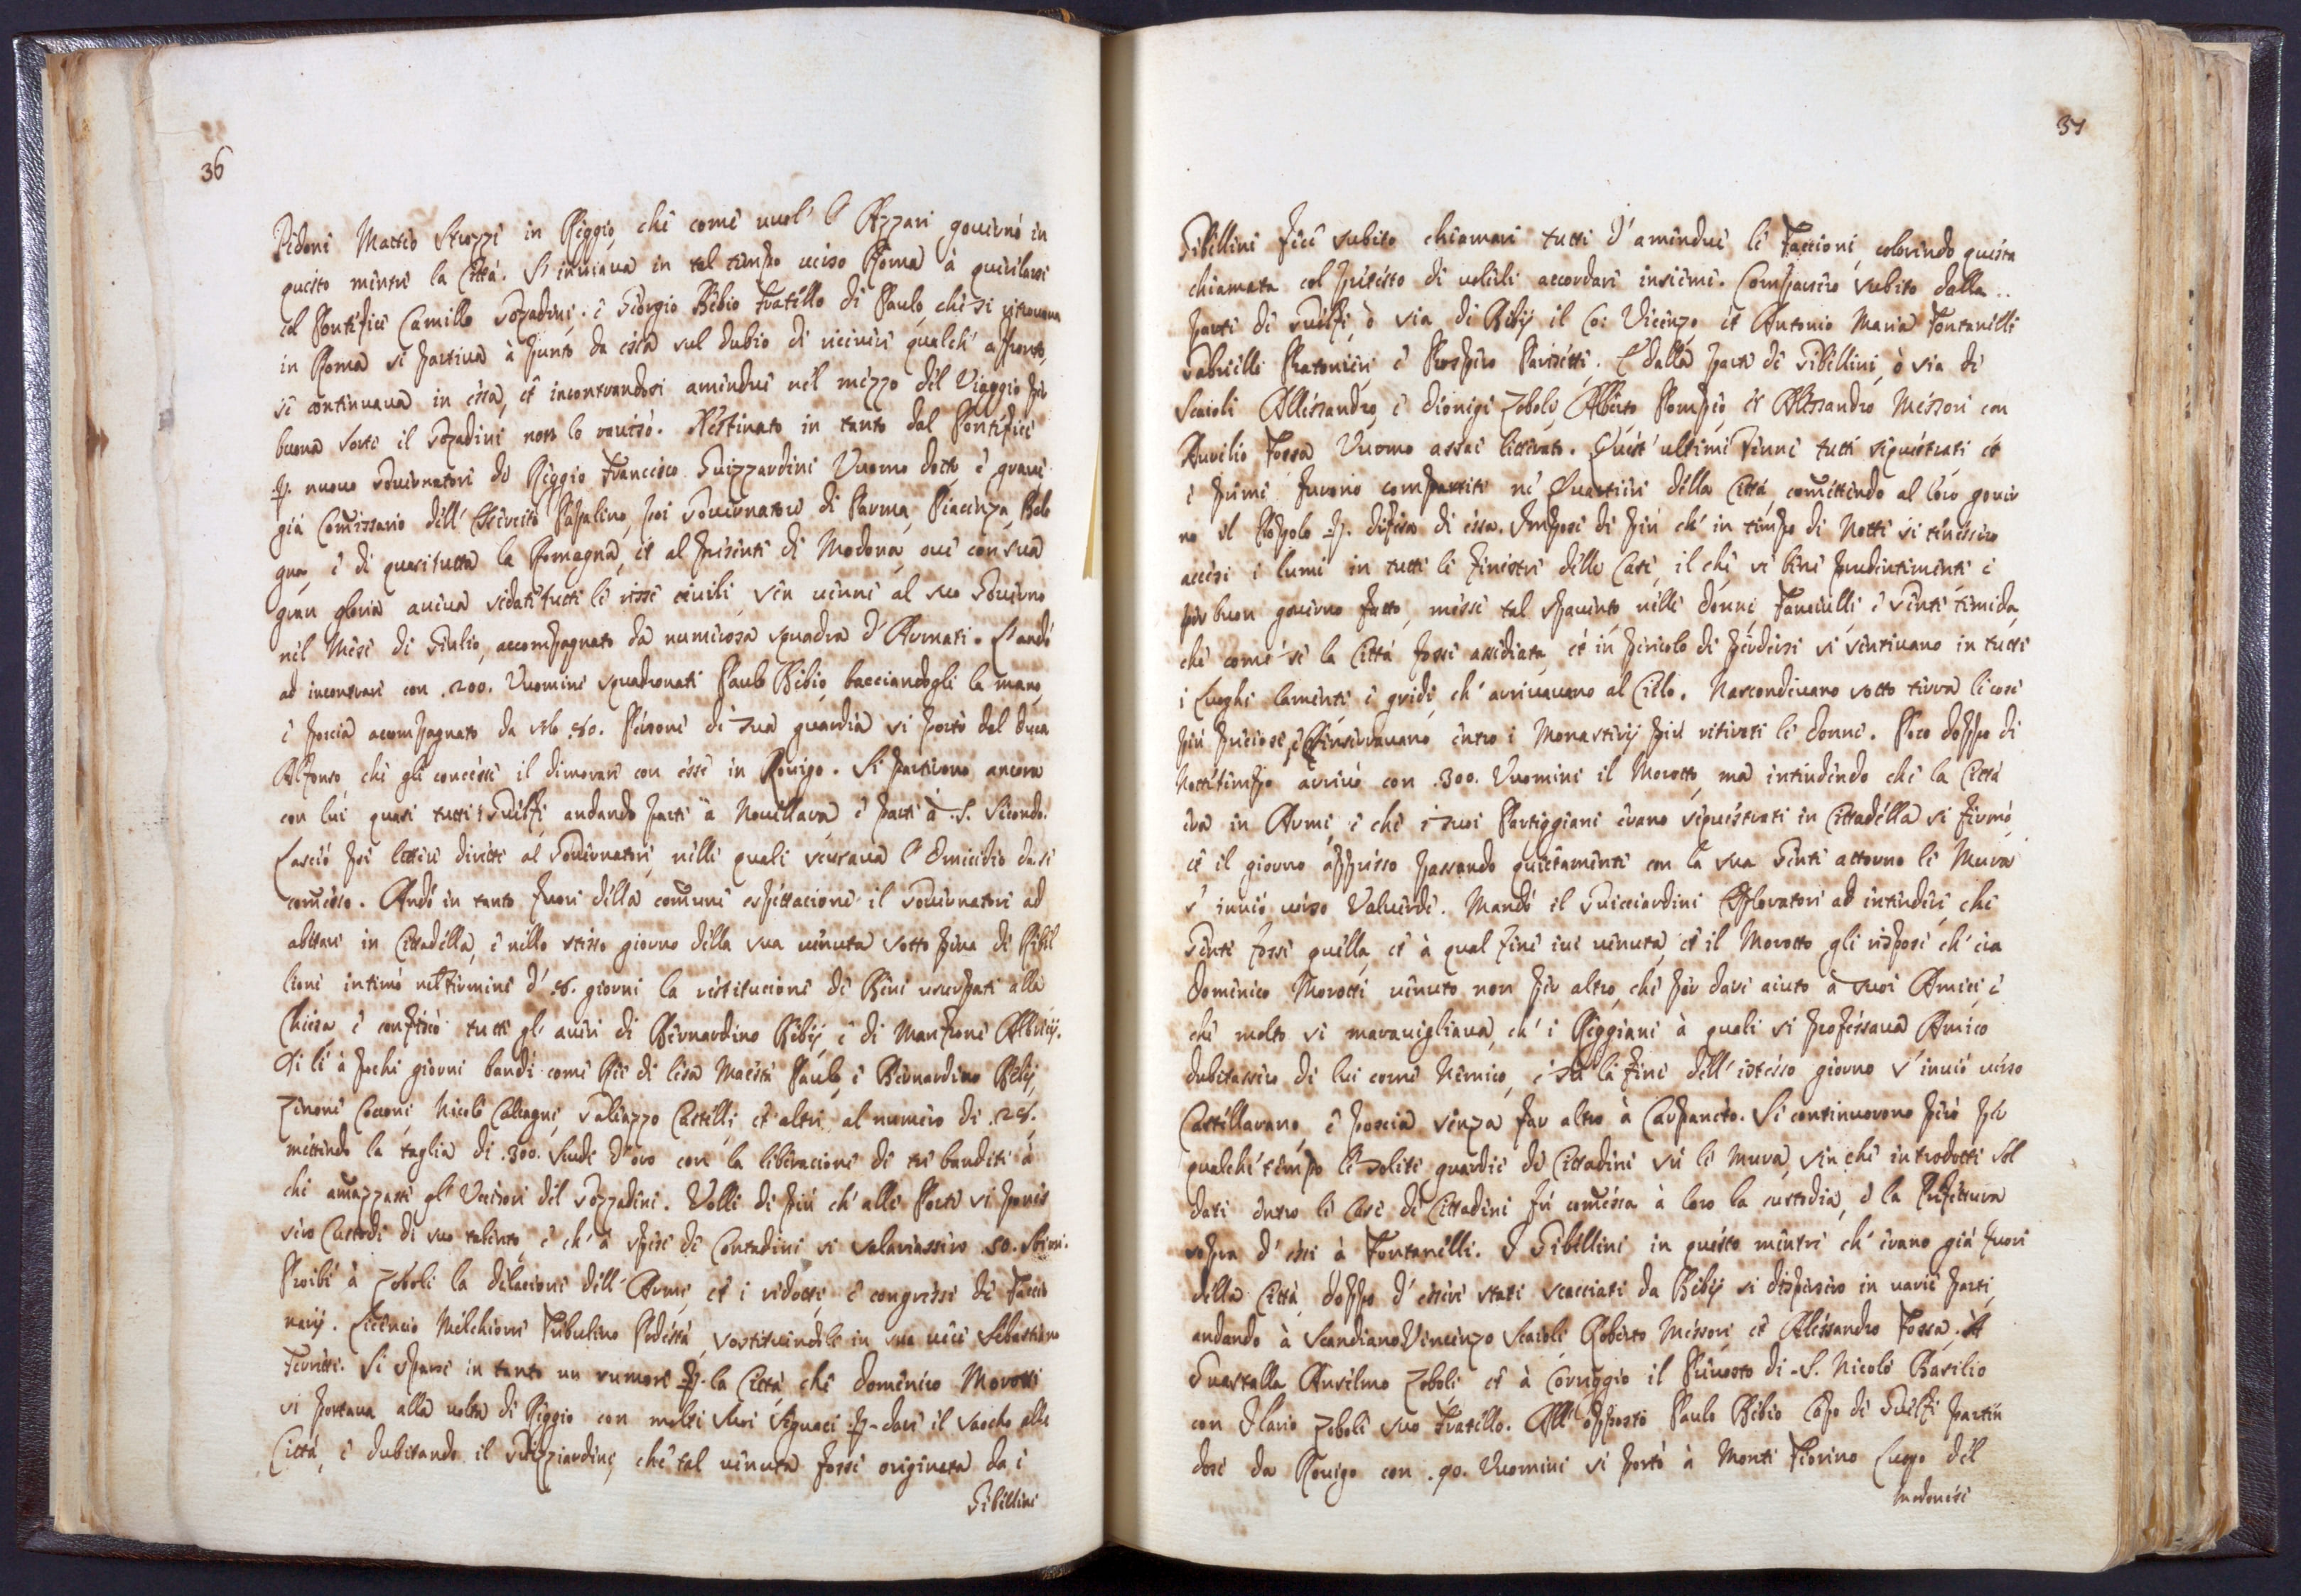 36
Pidoni Matteo Strozzi in Reggio, che come vuol' l' Azzari governò in
questo mentre la Città. S' inviava in tal tempo verso Roma à querelarsi
col Pontefice Camillo Sozadini. è Giorgio Bebio Fratello di Paulo, che si ritrovava
in Roma si partiva à punto da essa sul dubio di ricevere qualch' affronto,
se continuava in essa, et incontrandosi amendue nel mezzo del Viaggio per
buona sorte il Sozadini non lo ravisò. Destinato in tanto dal Pontefice
p. nuovo Governatore di Reggio Francesco Guizzardini Vuomo dotto, è grave
già Comissario dell' Essercito Papalino, poi Governatore di Parma, Piacenza, Bolo
gna, è di quasi tutta la Romagna, et al presente di Modona, ove con sua
gran gloria aveva sedati tutte le risse civili, sen venne al suo Governo
nel Mese di Giulio, accompagnato da numerosa squadra d' Armati. L' andò
ad incontrare con .200. Vuomini squadronati Paulo Bebio, bacciandogli la mano,
è poscia acompagnato da Persone di sua guardia si portò dal Duca
Alfonso, che gli concesse il dimorare con esse in Rovigo. Si partirono ancora
con lui quasi tutti i Guelfi andando parte à Novellara, è parte à .S. Secondo.
Lasciò poi lettere dirette al Governatore, nelle quali versava l' Omicidio da se
comesso. Andò in tanto fuori della comune espettacione il Governatore ad
abitare in Cittadella, è nello stesso giorno della sua venuta sotto pena di Ribel
lione intimò nel termine d' giorni la restitucione de Beni usurpati alla
Chiesa è confiscò tutti gl' averi di Bernardino Bebij, è di Manfrone Albricij.
Di lì à pochi giorni bandì come Rei di lesa Maestà Paulo, è Bernardino Bebij,
Zenone Coconi, Nicolò Calcagni, Galeazzo Castelli, et altri, al numero di
mettendo la taglia di .300. Scudi d' oro con la liberacione di tre banditi à
chi amazzasse gl' Uccisori del Sozzadini. Volle di più ch' alle Porte si ponis
sero Custodi di suo talento, è ch' à spese de Contadini si salariassero 50. Sbirri.
Proibì à Zoboli la delacione dell' Armi, et i ridotti, è congressi de Faccio
narij. Licenciò Melchiorre Tubulino Podestà, sostituendole in sua vece Sebastiano
Ferretti. Si sparse in tanto un rumore p. la Città, che Domenico Morotti
si portava alla volta di Reggio con molti suoi seguaci p. dare il sacco alla
Città, è dubitando il Guizziardini, che tal venuta fosse originata da i
Gibellini
37
Gibellini fece subito chiamare tutti d' amendue le Faccioni, colorendo questa
chiamata col pretesto di volerli accordare insieme. Comparsero subito dalla ..
parte de Guelfi, ò sia di Bebij il Co: Vicenzo, et Antonio Maria Fontanelli
Gabrielle Pratonieri è Prospero Parisetti. E dalla parte de Gibellini, ò sia di
Scaioli Allessandro, è Dionigi Zoboli Alberto Pompeo et Alessandro Messori con
Aurelio Fossa Vuomo assai litterato. Quest' ultimi venne tutti sequestrati et
i primi furono compartiti ne' Quartieri della Città, comettendo al loro gover
no il Popolo p. difesa di essa. Impose di più ch' in tempo di Notte si tenessero
accesi i lumi in tutte le finestre delle Case, il che se bene prudentemente è
per buon governo fatto, messe tal spavento nelle donne, Fanciulli è Gente timida,
che come se la Città fosse assediata, et in pericolo di perdersi si sentivano in tutti
i Luoghi lamenti è gridi, ch' arrivavano al Cielo. Nascondevano sotto terra le cose
più preciose, è rinserravano entro i Monasterij più ritirati le donne. Poco doppo di
Nottetempo arrivò con .300. Vuomini il Morotto, ma intendendo che la Città
era in Armi, è che i suoi Partiggiani erano sequestrati in Cittadella si fermò,
et il giorno appresso passando quietamente con la sua Gente attorno le Mura
s' inviò verso Valverde. Mandò il Guicciardini Esploratori ad intendere, che
Gente fosse quella, et à qual fine ivi venuta, et il Morotto gli rispose ch' era
Domenico Morotti venuto non per altro, che per dare aiuto à suoi Amici, è
che molto si maravigliava, ch' i Reggiani à quali si professava Amico
dubitassero di lui come Nemico, è su la fine dell' istesso giorno s' inviò verso
Castellarano, è poscia senza far altro à Carpaneto. Si continuorono però per
qualche tempo le solite guardie de Cittadini sù le mura, sin che introdotti Sol
dati entro le Case de Cittadini fù comessa à loro la custodia, è la Prefettura
sopra d' essi à Fontanelli. I Gibellini in questo mentre ch' erano già fuori
della Città doppo d' essere stati scacciati da Bebij si dispersero in varie parti,
andando à Scandiano Vincenzo Scaioli, Roberto Messori, et Alessandro Fossa. A
Guastalla Anselmo Zoboli et à Coreggio il Prevosto di .S. Nicolò Basilio
con Ilario Zoboli suo Fratello. All' opposto Paulo Bebio Capo de Guelfi parten
dosi da Rovigo con .90. Vuomini si portò à Monte Fiorino Luogo del
Modonese